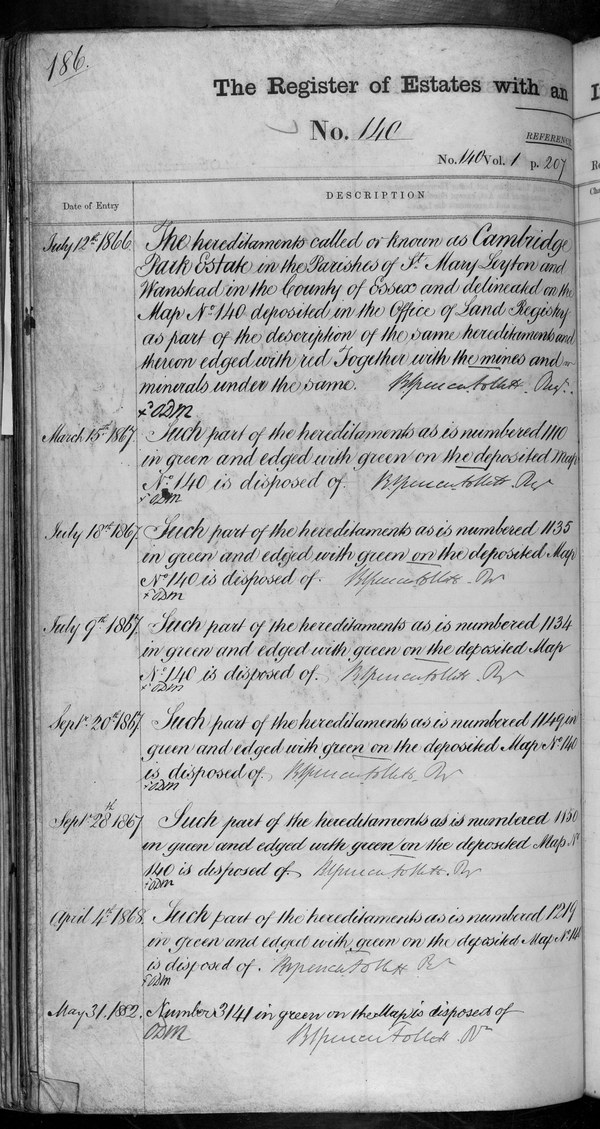 186.
The Register of Estates with an
No. 140
REFERENCE
No. 140 Vol. 1 p. 207
Date of Entry
DESCRIPTION
July 12th 1866. The hereditaments called or known as Cambridge
Park Estate in the Parishes of St. Mary Leyton and
Wanstead in the County of Essex and delineated on the
Map No. 140 deposited in the Office of Land Registry
as part of the description of the same hereditaments and
thereon edged with red Together with the mines and
minerals under the same. B Spencer Follett. Regr.
ODM
March 15th 1867. Such part of the hereditaments as is numbered 1110
in green and edged with green on the deposited Map
No. 140 is disposed of. B Spencer Follett. Regr
ODM
July 18th 1867. Such part of the hereditaments as is numbered 1135
in green and edged with green on the deposited Map
No. 140 is disposed of. B Spencer Follett. Rr
ODM
July 9th 1867. Such part of the hereditaments as is numbered 1134
in green and edged with green on the deposited Map
No. 140 is disposed of. B Spencer Follett. Rr
ODM
Septr. 20th 1867. Such part of the hereditaments as is numbered 1149 in
green and edged with green on the deposited Map No. 140
is disposed of. B Spencer Follett. Rr
ODM
Septr. 28th 1867 Such part of the hereditaments as is numbered 1150
in green and edged with green on the deposited Map No.
140 is disposed of B Spencer Follett. Rr
ODM
April 4th 1868. Such part of the hereditaments as is numbered 1219
in green and edged with green on the deposited Map No. 140
is disposed of. B Spencer Follett Rr
ODM
May 31. 1882. Number 3141 in green on the Map is disposed of
ODM B Spencer Follett. Rr